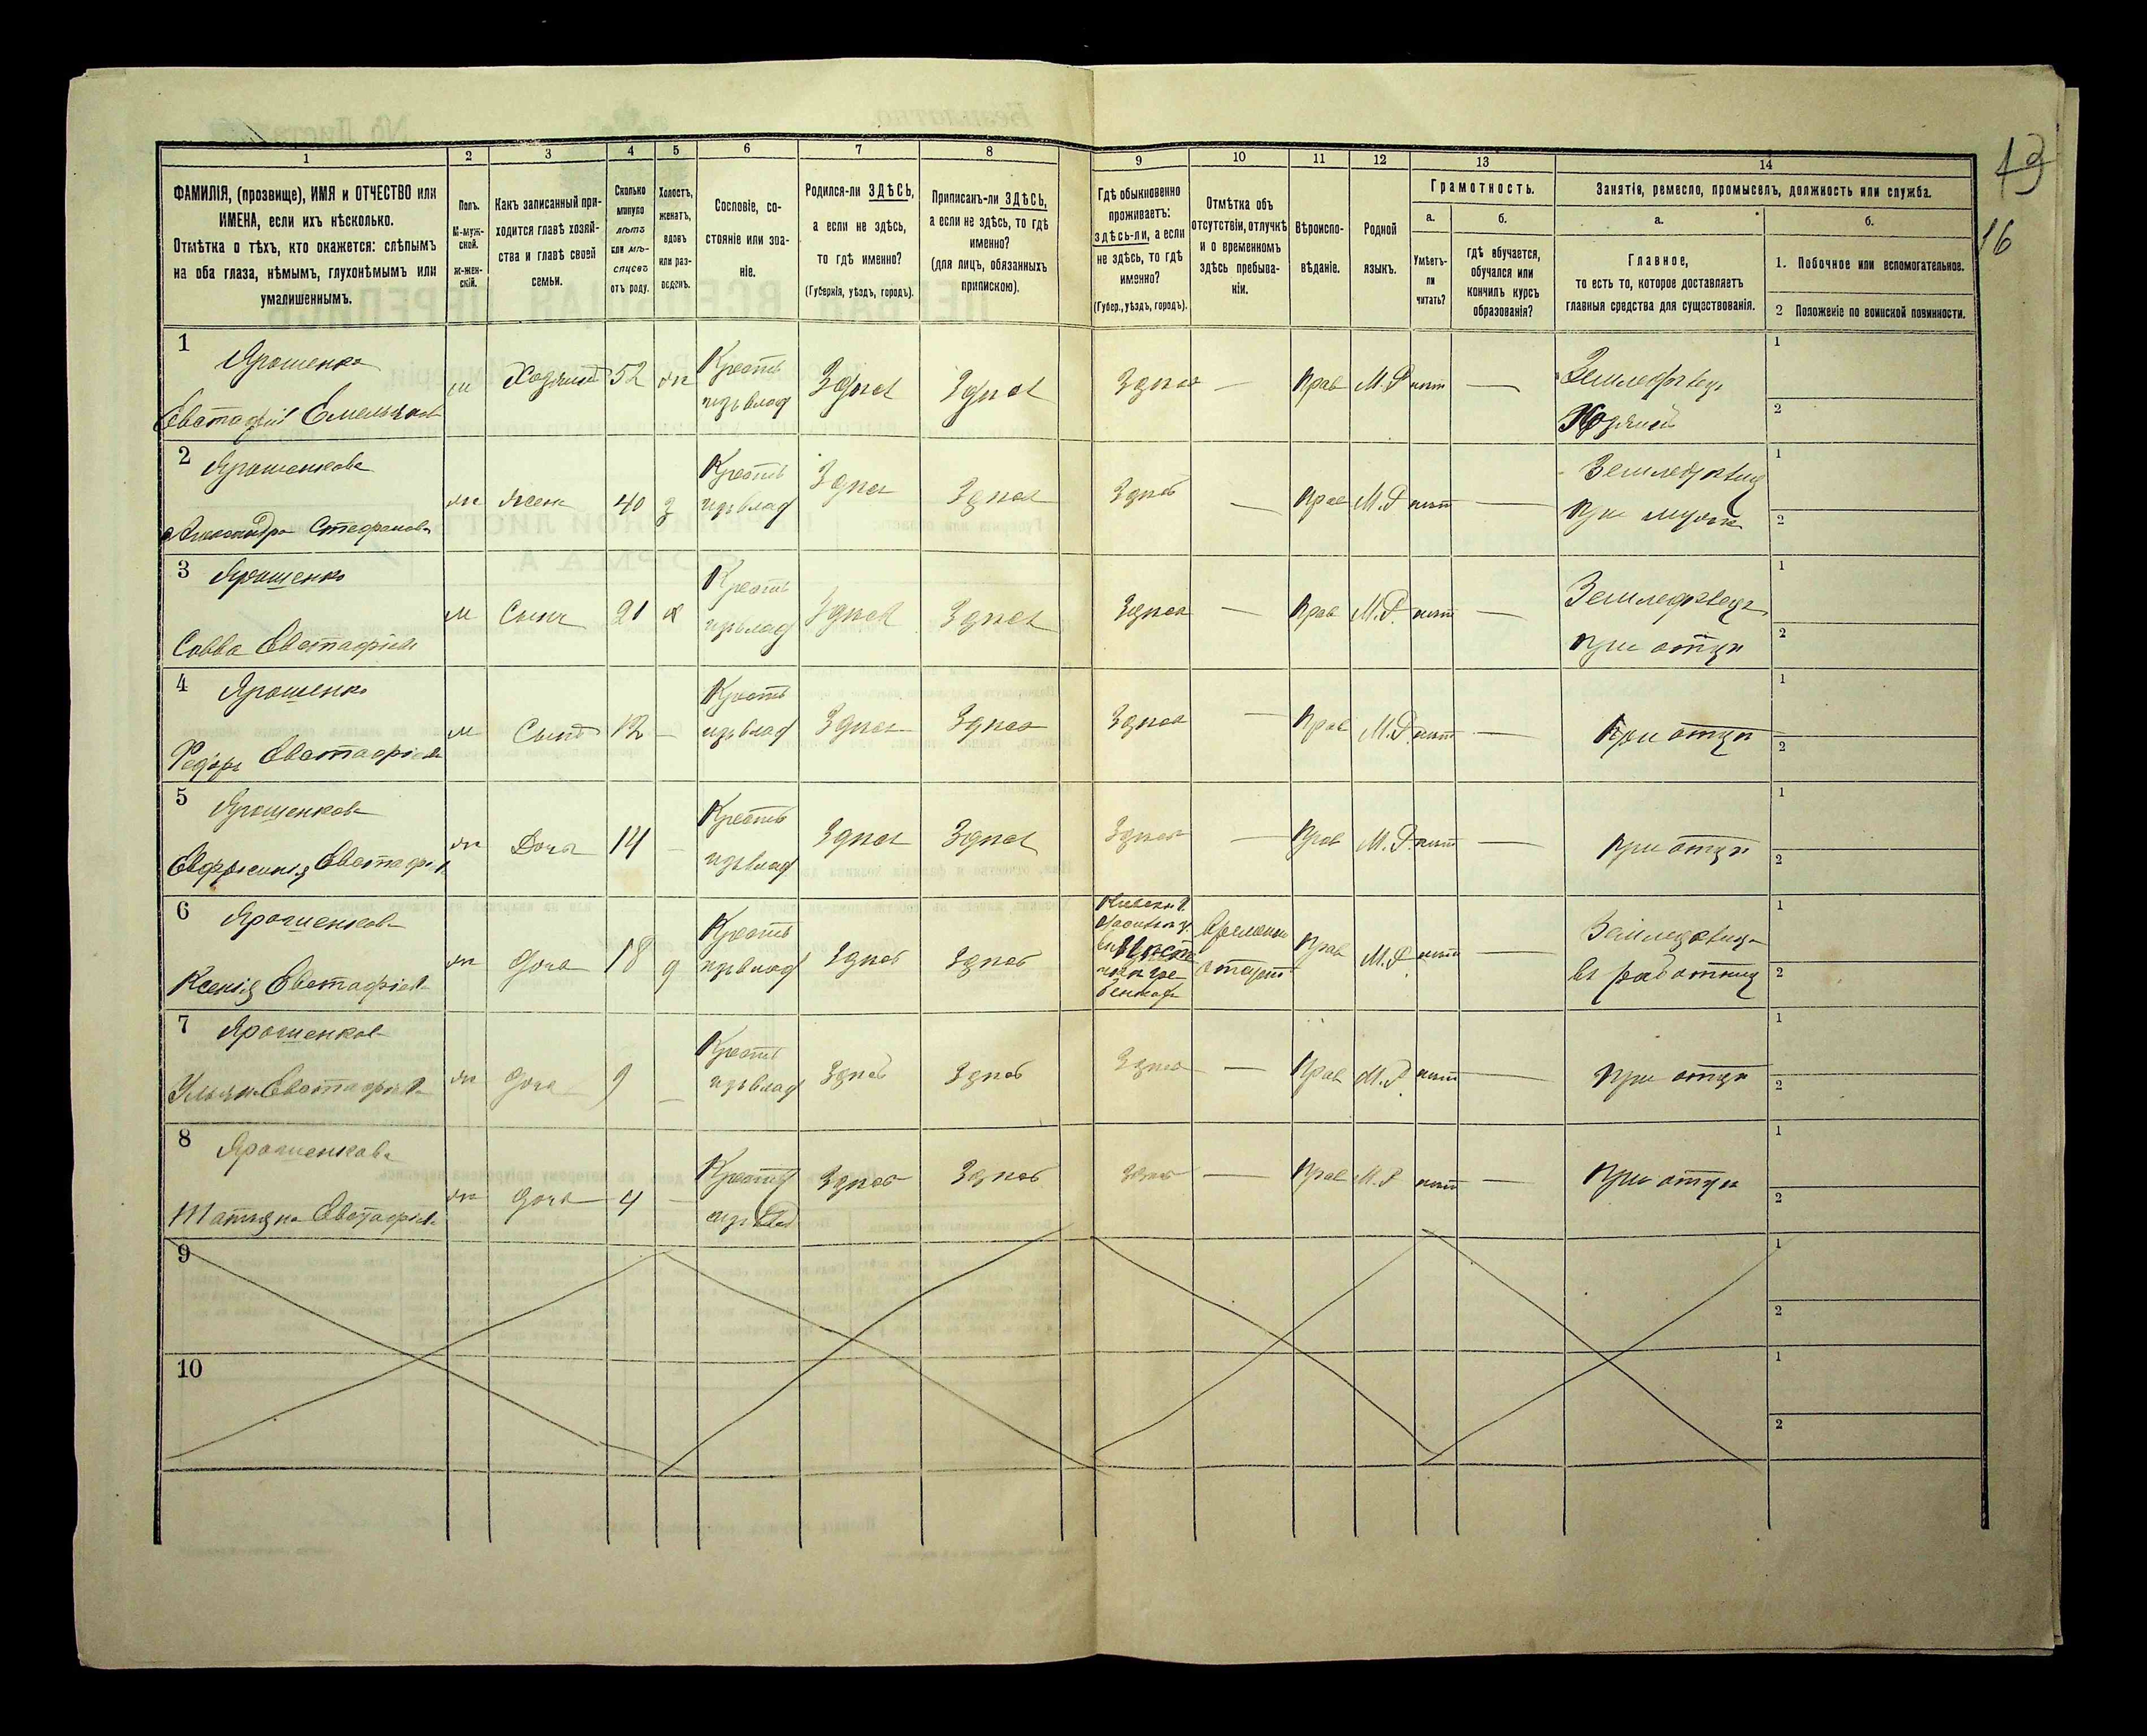 13
16
1
2
3
4
5
6
7
8
9
10
11
12
13
14
ФАМИЛІЯ, (прозвище), ИМЯ и ОТЧЕСТВО или
ИМЕНА, если ихъ нѣсколько.
Отмѣтка о тѣхъ, кто окажется: слѣпымъ
на оба глаза, нѣмымъ, глухонѣмымъ или
умалишеннымъ.
Полъ.
М-муж-
ской.
ж-жен-
скій.
Какъ записанный при-
ходится главѣ хозяй-
ства и главѣ своей
семьи.
Сколько
минуло
лѣтъ
или мѣ-
сяцевъ
отъ роду.
Холостъ,
женатъ,
вдовъ
или раз-
веденъ.
Сословіе, со-
стояніе или зва-
ніе.
Родился-ли ЗДѢСЬ,
а если не здѣсь,
то гдѣ именно?
(Губернія, уѣздъ, городъ).
Приписанъ-ли ЗДѢСЬ,
а если не здѣсь, то гдѣ
именно?
(для лицъ, обязанныхъ
припискою).
Гдѣ обыкновенно
проживаетъ:
здѣсь-ли, а если
не здѣсь, то гдѣ
именно?
(Губер., уѣздъ, городъ).
Отмѣтка объ
отсутствіи, отлучкѣ
и о временномъ
здѣсь пребыва-
ніи.
Вѣроиспо-
вѣданіе.
Родной
языкъ.
Грамотность.
а.
б.
Умѣетъ-
ли
читать?
гдѣ обучается,
обучался или
кончилъ курсъ
образованія?
Занятіе, ремесло, промыселъ, должность или служба.
а.
б.
Главное,
то есть то, которое доставляетъ
главныя средства для существованія.
1. Побочное или вспомогательное.
2 Положеніе по воинской повинности.
1
Ярошенко
Евстафій Емельянов
м Хозяинъ 52 жн
Крестъ
изъ влад
Здѣсь Здѣсь Здѣсь — Прав М.Р нѣт —
Земледѣлецъ
Хозяинъ
1
2
2
Ярошенкова
Александра Стефанова
жн жена 40 з
Крестъ
изъ влад
Здѣсь Здѣсь Здѣсь — Прав М.Р нѣт —
Земледѣлец
При мужѣ
1
2
3
Ярошенко
Савва Евстафіев
м Сынъ 21 х
Крестъ
изъ влад
Здѣсь Здѣсь Здѣсь — Прав М.Р. нѣт —
Земледѣлецъ
При отцѣ
1
2
4
Ярошенко
Федоръ Евстафіев
м Сынъ 12 —
Крестъ
изъ влад
Здѣсь Здѣсь Здѣсь — Прав М.Р. нѣт —
При отцѣ
1
2
5
Ярошенкова
Евфросинія Евстафіев
жн Дочь 14 —
Крестъ
изъ влад
Здѣсь Здѣсь Здѣсь — Прав М.Р. нѣт —
При отцѣ
1
2
6
Ярошенкова
Ксенія Евстафіев
жн Дочь 18 д
Крестъ
изъ влад
Здѣсь Здѣсь
Временно
Прав М.Р. нѣт —
Земледѣлица
въ работниц
1
2
7
Ярошенкова
Ульян Евстафіев
жн Дочь 9 —
Крестъ
изъ влад
Здѣсь Здѣсь Здѣсь — Прав М.Р. нѣт —
При отцѣ
1
2
8
Ярошенкова
Татіяна Евстафіев
жн Дочь 4 —
Крестъ
изъ влад
Здѣсь Здѣсь Здѣсь — Прав М.Р нѣт —
При отцѣ
1
2
9
1
2
10
1
2